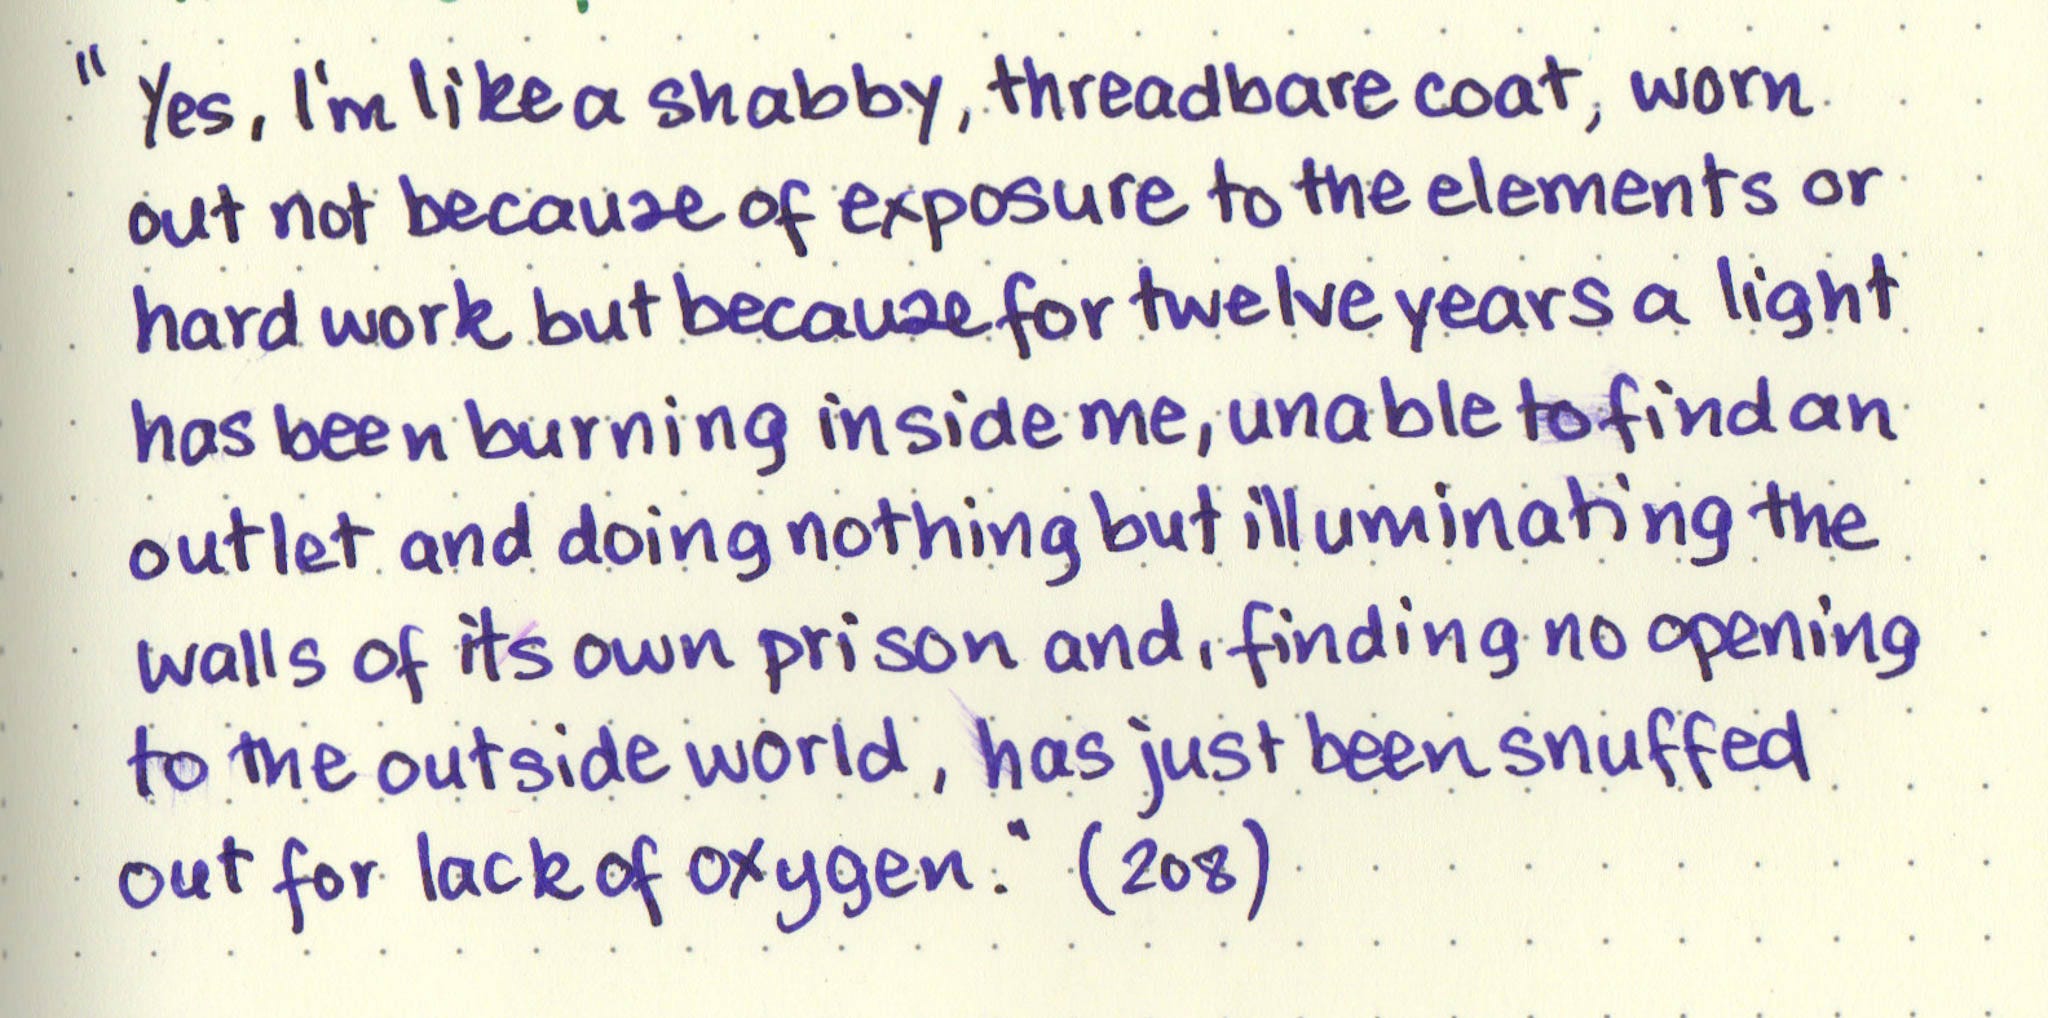 "Yes, I'm like a shabby, threadbare coat, worn
out not because of exposure to the elements or
hard work but because for twelve years a light
has been burning inside me, unable to find an
outlet and doing nothing but illuminating the
walls of its own prison and, finding no opening
to the outside world, has just been snuffed
out for lack of oxygen." (208)